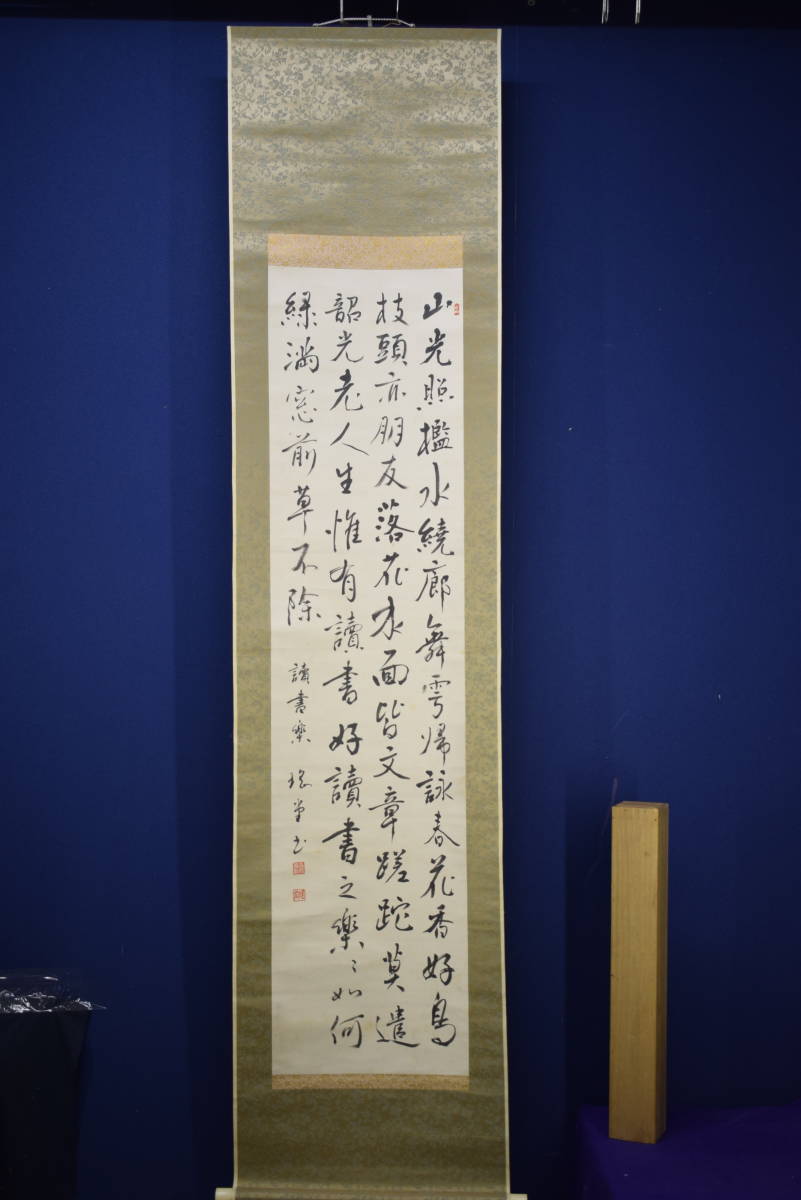 山光照檻水繞廊舞雩帰詠春花香好鳥
枝頭亦朋友落花水面皆文章蹉跎莫遣
韶光老人生惟有讀書好讀書之樂〻如何
綠満窓前草不除
讀書樂
堂書